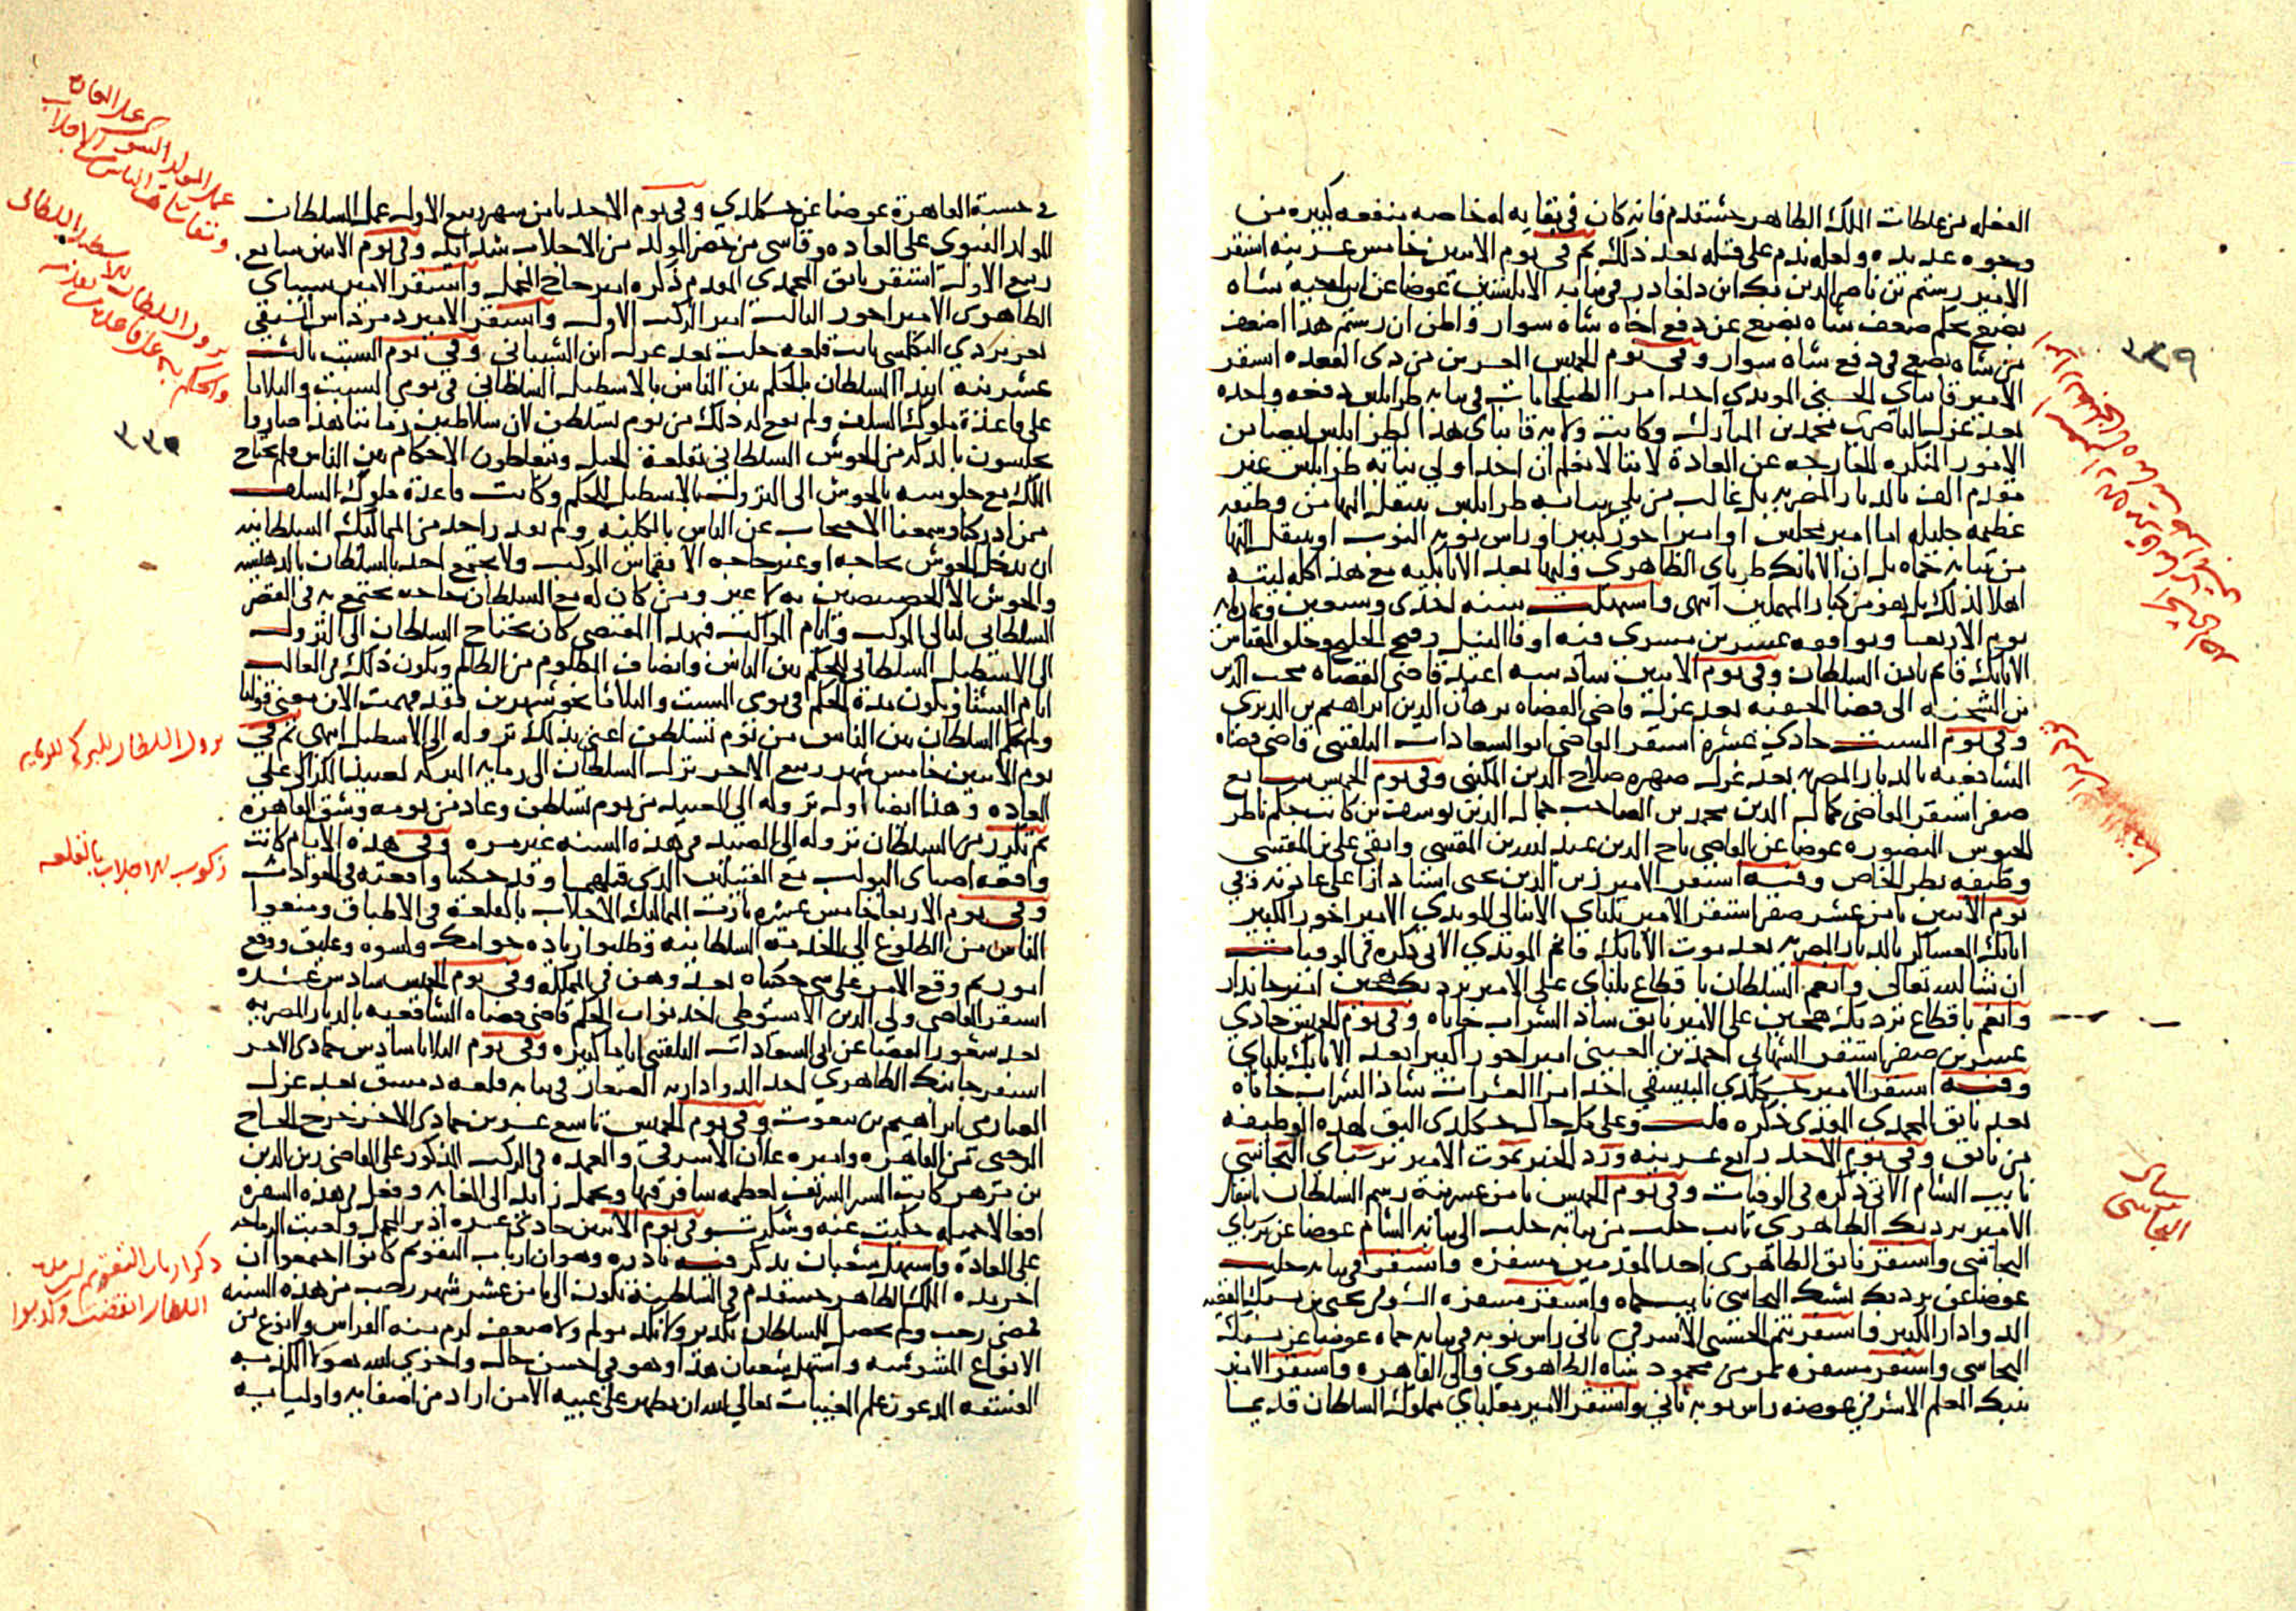 الفعله من غلطات الملك الظاهر خشقدم فانه كان في بقايه له خاصه منفعه كبيره من
وجوه عديده ولعله ندم على قتله بعد ذلك ثم في يوم الاثنين خامس عشرينه استقر
الامير رستم بن ناصر الدين بك ابن دلغادر في نيابه الابلستين عوضا عن ابن اخيه شاه
بضع بحكم ضعف شاه بضع عن دفع اخاه شاه سوار واظن ان رستم هذا اضعف
من شاه بضع في دفع شاه سوار وفي يوم الخميس العشرين من ذي القعده استقر
الامير قانباي الحسني المويدي احد امرا الطبلخانات في نيابه طرابلس دفعه واحده
بعد عزل الناصري محمد بن المبارك وكانت ولايه قانباي هذا لطرابلس ايضا من
الامور المنكره الخارجه عن العادة لاننا لا نعلم ان احدا ولي نيابه طرابلس عير
مقدم الف بالديار المصريه بل غالب من يلي نيابه طرابلس ينتقل اليها من وظيفه
عظيمه جليله اما امير مجلس او امير اخور كبير او راس نوبه النوب او ينتقل اليها
من نيابه حماه بل ان الاتابك طرباي الظاهري وليها بعد الاتابكيه مع هذا كله ليته
اهلا لذلك بل هو من كبار المهملين انتهى واستهلت سنه احدى وسبعين وثمان مايه
يوم الاربعا ويوافقه عشرين مسرى فيه اوفا النيل وفتح الخليج وخلق المقياس
الاتابك قانم باذن السلطان وفي يوم الاثنين سادسه اعيد قاضي القضاه محب الدين
بن الشحنه الى قضا الحنفيه بعد عزل قاضي القضاه برهان الدين ابراهيم بن الديري
وفي يوم السبت حادي عشره استقر القاضي ابو السعادات البلقيني قاضي قضاه
الشافعيه بالديار المصريه بعد عزل صهره صلاح الدين المكيني وفي يوم الخميس سابع
صفر استقر القاضي كمال الدين محمد بن الصاحب جمال الدين يوسف بن كاتب جكم ناظر
الجيوش المنصوره عوضا عن القاضي تاج الدين عبد الله بن المقسي وابقى على بن المقسي
وظيفه نظر الخاص وفيه استقر الامير زين الدين يحيى استادارا على عادته وفي
يوم الاثنين ثامن عشر صفر استقر الامير يلباي الاينالي المويدي الامير اخور الكبير
اتابك العساكر بالديار المصريه بعد موت الاتابك قانم المويدي الاتي ذكره في الوفيات
ان شا الله تعالى وانعم السلطان باقطاع يلباي على الامير بردبك هجين امير جاندار
وانعم باقطاع بردبك هجين على الامير نانق شاد الشراب خاناه وفي يوم الخميس حادي
عشرين صفر استقر الشهابي احمد بن العيني امير اخور كبيرا بعد الاتابك يلباي
وفيه استقر الامير خشكلدي البيسقي احد امرا العشرات شاد الشراب خاناه
بعد نانق المحمدي المقدم ذكره قلت وعلى كل حال خشكلدي اليق لهذه الوظيفه
من نانق وفي يوم الاحد رابع عشرينه ورد الخبر بموت الامير برسباي البجاسي
نايب الشام الاتي ذكره في الوفيات وفي يوم الخميس ثامن عشرينه رسم السلطان بانتقال
الامير بردبك الظاهري نايب حلب من نيابه حلب الى نيابه الشام عوضا عن برسباي
البجاسي واستقر نانق الظاهري احد المقدمين مسفره واستقر في نيابه حلب
عوضا عن بردبك يشبك البجاسي نايب حماه واستقر مسفره الشرفي يحيى بن يشبك الفقيه
الدوادار الكبير واستقر تنم الحسني الاشرفي ثاني راس نوبه في نيابه حماه عوضا عن يشبك
البجاسي واستقر مسفره تمر من محمود شاه الظاهري والي القاهره واستقر الامير
تنبك المعلم الاشرفي عوضه راس نوبه ثاني واستقر الامير مغلباي مملوك السلطان قديما
٣٣٩
نيابه البجاسي
في حسبة القاهرة عوضا عن خشكلدي وفي يوم الاحد ثامن شهر ربيع الاول عمل السلطان
المولد النبوي على العاده وقاسى من حضر المولد من الاجلاب شدايد وفي يوم الاثنين سابع
ربيع الاول استقر نانق المحمدي المقدم ذكره امير حاج المحمل واستقر الامير سيباي
الظاهري الامير اخور الثالث امير الركب الاول واستقر الامير دمرداش السيفي
تغري بردي البكلمشي نايب قلعه حلب بعد عزل ابن الشيباني وفي يوم السبت ثالث
عشرينه ابتدا السلطان بالحكم بين الناس بالاسطبل السلطاني في يومي السبت والثلاثا
على قاعدة ملوك السلف ولم يقع له ذلك من يوم تسلطن لان سلاطين زماننا هذا صاروا
يجلسون بالدكه من الحوش السلطاني بقلعة الجبل ويتعاطون الاحكام بين الناس فلم يحتاج
الملك مع جلوسه بالحوش الى النزول بالاسطبل للحكم وكانت قاعدة ملوك السلف
ممن ادركنا وسمعنا الاحتجاب عن الناس بالكليه ولم يعد راحد من المماليك السلطانيه
ان يدخل الحوش بحاجه او غير حاجه الا بقماش الموكب ولا يجتمع احد بالسلطان بالدهيشه
والحوش الا الخصيصين به لا عير ومن كان له مع السلطان حاجه يجتمع به في القصر
السلطاني ليالي الموكب وايام المواكب فبهذا المقتضى كان يحتاج السلطان الى النزول
الى الاسطبل السلطاني للحكم بين الناس وانصاف المظلوم من الظالم ويكون ذلك في الغالب
ايام الشتا ويكون مدة الحكم في يومي السبت والثلاثا نحو شهرين فقد فهمت الان معنى قولنا
ولم يحكم السلطان بين الناس من يوم تسلطن اعني بذلك نزوله الى الاسطبل انتهى ثم في
يوم الاثنين خامس شهر ربيع الاخر نزل السلطان الى رمايه البركه لصيد الكراكي على
العاده وهذا ايضا اول نزوله الى الصيد من يوم تسلطن وعاد من يومه وشق القاهره
ثم تكرر من السلطان نزوله الى الصيد في هذه السنه غير مره وفي هذه الايام كانت
واقعه اصباي البواب مع القتيلين الذي قتلهما وقد حكينا واقعته في الحوادث
وفي يوم الاربعا خامس عشره ثارت المماليك الاجلاب بالقلعة في الاطباق ومنعوا
الناس من الطلوع الى الخدمه السلطانيه وطلبوا زياده جوامك وكسوه وعليق ووقع
امور ثم وقع الامر على شي حكيناه بعد وهن في المملكة وفي يوم الخميس سادس عشره
استقر القاضي ولي الدين الاسيوطي احد نواب الحكم قاضي قضاه الشافعيه بالديار المصريه
بعد شغور القضا عن ابي السعادات البلقيني اياما كثيره وفي يوم الثلاثا سادس جمادى الاخر
استقر جانبك الظاهري احد الدواداريه الصغار في نيابه قلعه دمشق بعد عزل
الصارمي ابراهيم بن بيغوت وفي يوم الخميس تاسع عشرين جمادى الاخر خرج الحاج
الرجبي من القاهره واميره علان الاشرفي والعمده في الركب المذكور على القاضي زين الدين
بن مزهر كاتب السر الشريف لعظمه سافر فيها وتجمل زايد الى الغايه وفعل في هذه السفره
افعالا جميله حكيت عنه وشكرت وفي يوم الاثنين حادي عشره ادير المحمل ولعبت الرماحه
على العادة واستهل شعبان يذكر فيه نادره وهو ان ارباب التقويم كانوا اجمعوا ان
اخر مده الملك الظاهر خشقدم في السلطنه تكون الى ثامن عشر شهر رجب من هذه السنه
فمضى رجب ولم يحصل للسلطان نكد ولا نكد مولم ولا ضعف لزم منه الفراش ولا نوع من
الانواع المشوشه واستهل شعبان هذا وهو في احسن حال واخزى الله هولا الكذبه
الفسقه المدعون علم المغيبات تعالى الله ان يظهر على غيبه الا من اراد من اصفيايه واوليايه
عمل المولد النبوي على العاده
وتقاسا هنا الناس من الاجلاب
نزول السلطان للاسطبل السلطاني
والحكم به على قاعده من تقدمه
٣٣٩
نزول السلطان للبركه للرمايه
ركوب الاجلاب بالقلعه
ذكر ارباب التقويم ان مدة
السلطان انقضت وكذبوا